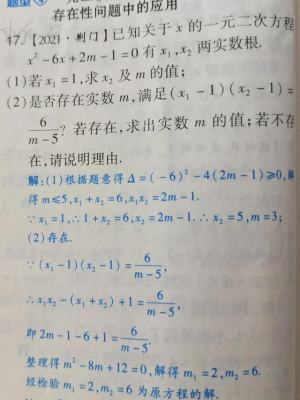 题型4
存在性问题中的应用
17.【2021·荆门】已知关于 x 的一元二次方程
x²-6x+2m-1=0 有 x₁,x₂ 两实数根.
(1)若 x₁=1,求 x₂ 及 m 的值;
(2)是否存在实数 m,满足(x₁-1)(x₂-1)=
6/(m-5)?若存在,求出实数 m 的值;若不存
在,请说明理由.
解:(1)根据题意得 Δ=(-6)²-4(2m-1)≥0,解
得 m≤5,x₁+x₂=6,x₁x₂=2m-1.
∵x₁=1,∴1+x₂=6,x₂=2m-1.∴x₂=5,m=3;
(2)存在.
∵(x₁-1)(x₂-1)=6/(m-5),
∴x₁x₂-(x₁+x₂)+1=6/(m-5),
即 2m-1-6+1=6/(m-5).
整理得 m²-8m+12=0,解得 m₁=2,m₂=6.
经检验 m₁=2,m₂=6 为原方程的解.